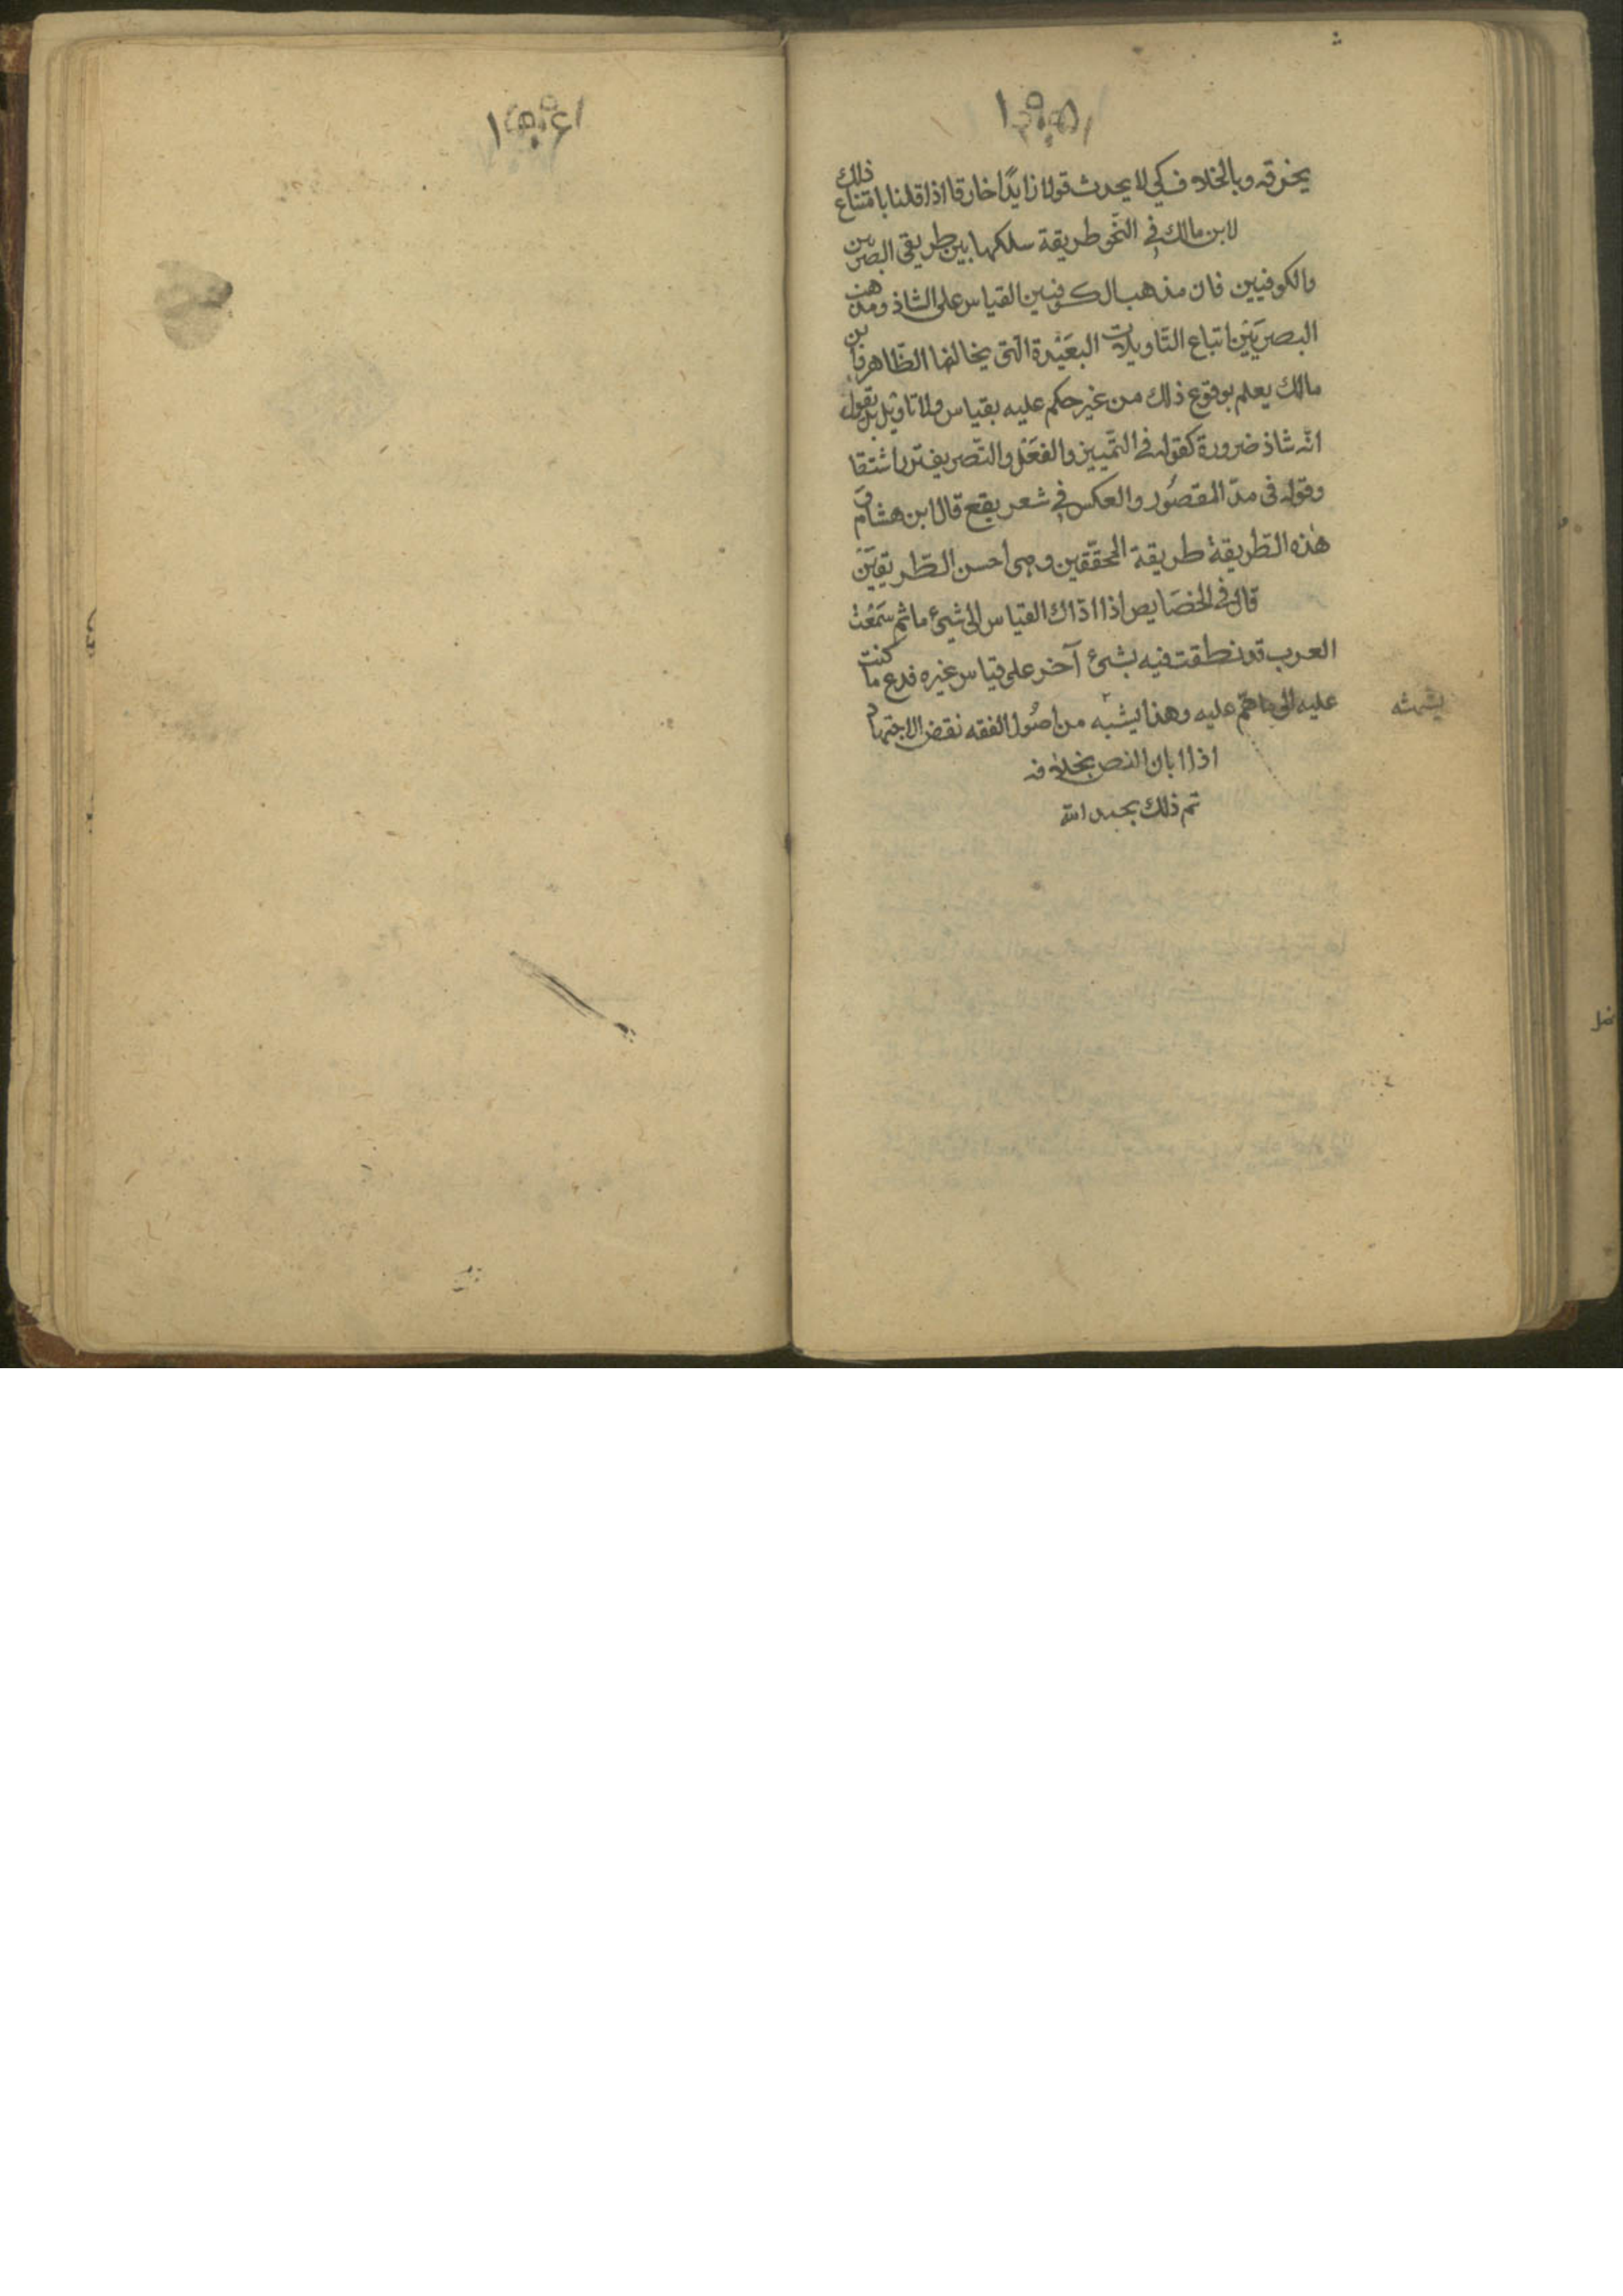 يخرقه وبالخلاف كي لا يحدث قولا زايدًا خارقا اذا قلنا بامتناع ذلك
لابن مالك في النّحو طريقة سلكها بين طريقي البصريين
والكوفيين فان مذهب الكوفيين القياس على الشاذ ومذهب
البصريَيْن اتباع التّاويلات البعَيْدة الّتى يخالفها الظّاهر فابن
مالك يعلم بوقوع ذلك من غير حكم عليه بقياس ولا تاويل بل يقول
انّه شاذ ضرورة كقوله في التّمييز والفعَل والتّصريف
وقوله فى مدّ المقصُور والعكس في شعر يقع قال ابن هشام و
هٰذه الطّريقة طريقة المحقّقين وهى احسن الطّريقيَن
قال في الخصَايص اذا اذاك القياس الى شيئ ما ثم سَمَعْت
العرب قد نطقت فيه بشئ آخر على قياس غيره فدع ما كنت
عليه الى ما هم عليه وهذا يشبه من اصُول الفقه نقض الاجتهاد
اذا ابان النص بخلافه
تم ذلك بحمد الله